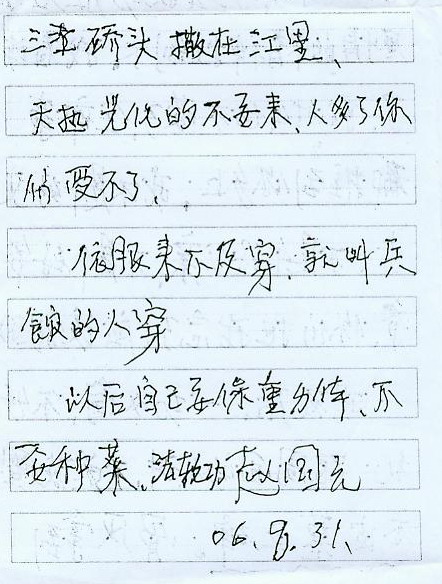 三 桥头撒在江里、
天热 光化的不要来、人多了你
们受不了、
衣服来不及穿、就叫兵
馆的人穿
以后自己要保重身体、不
要种菜、 赵国
06. 8. 31、